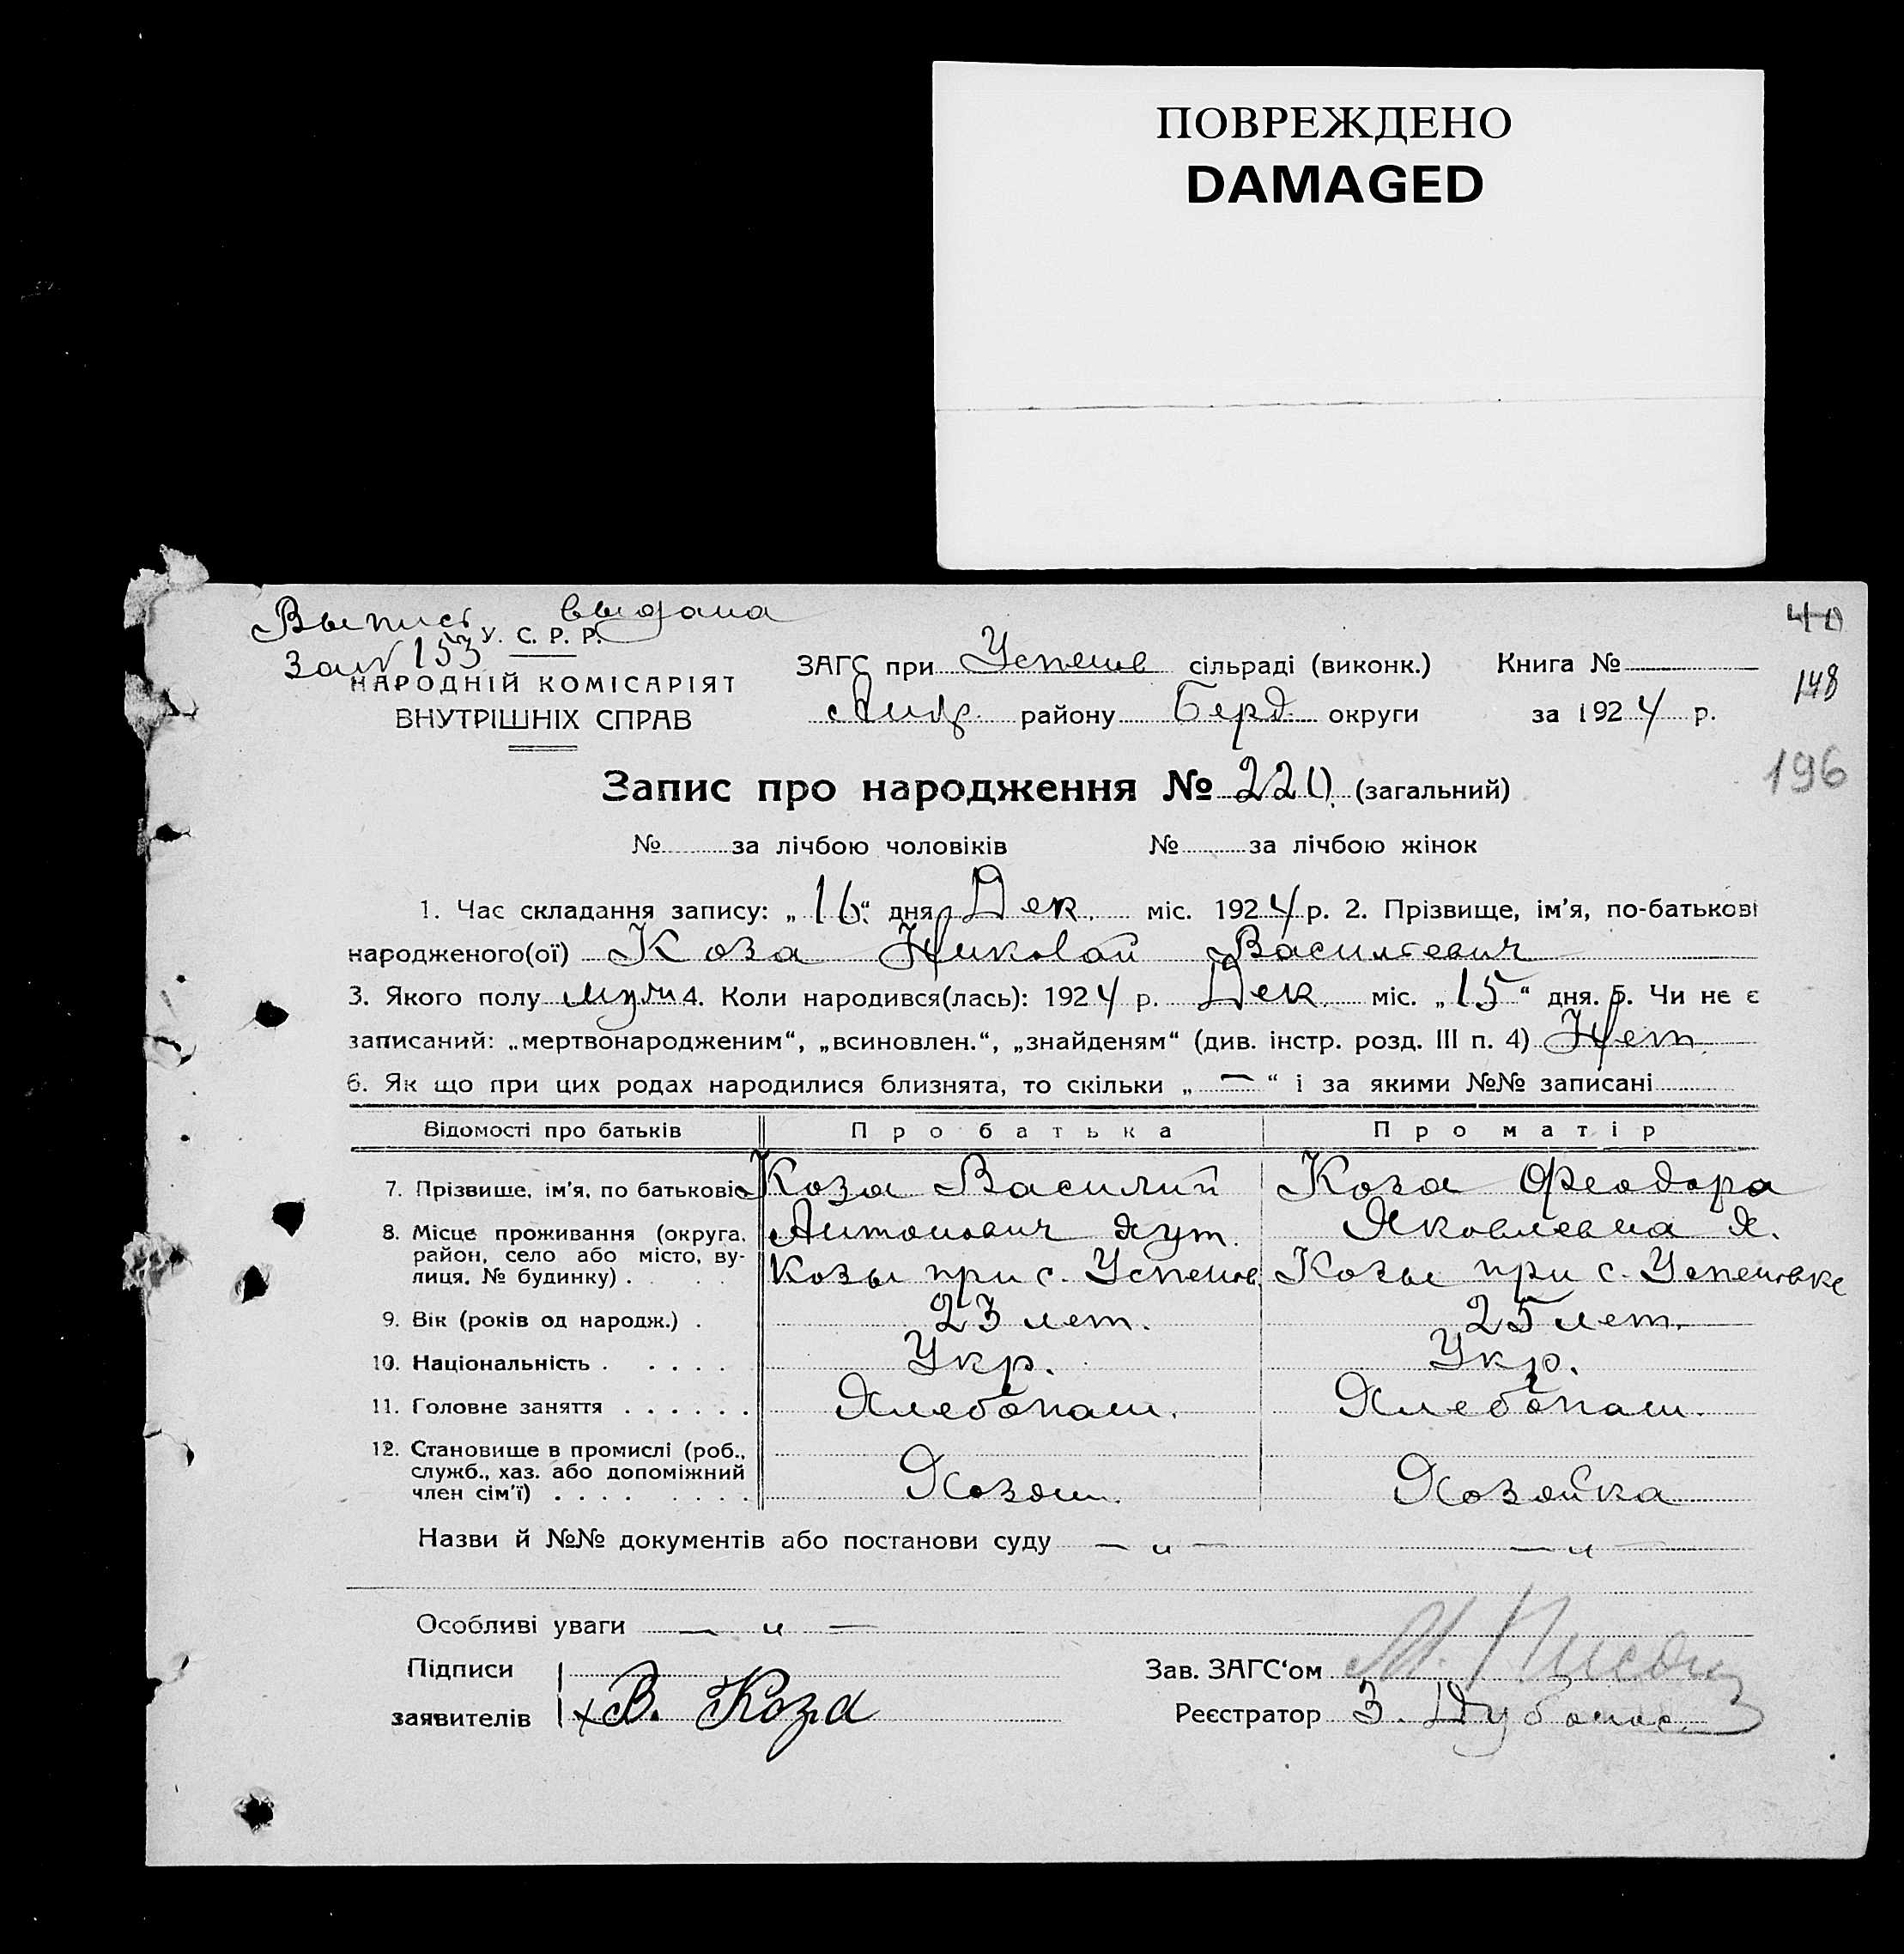 ПОВРЕЖДЕНО
DAMAGED
Выпись выдана
за № 153
У. С. Р. Р.
НАРОДНІЙ КОМІСАРІЯТ
ВНУТРІШНІХ СПРАВ
ЗАГС при Успенов сільраді (виконк.) Книга №
району Берд. округи за 1924 р.
40
148
196
Запис про народження № 220 (загальний)
№ за лічбою чоловіків № за лічбою жінок
1. Час складання запису: „16“ дня Дек. міс. 1924 р. 2. Прізвище, ім’я, по-батькові
народженого(ої) Коза Николай Васильевич
3. Якого полу муж 4. Коли народився(лась): 1924 р. Дек. міс. „15“ дня. 5. Чи не є
записаний: „мертвонародженим“, „всиновлен.“, „знайденям“ (див. інстр. розд. III п. 4) Нет.
6. Як що при цих родах народилися близнята, то скільки „ — “ і за якими №№ записані
Відомості про батьків Про батька Про матір
7. Прізвище, ім’я, по батькові Коза Василий Коза Феодора
8. Місце проживання (округа, район, село або місто, вулиця, № будинку) . Антонович хут. Козы при с. Успенов Яковлевна х. Козы при с. Успеновке
9. Вік (років од народж.) . 23 лет. 25 лет.
10. Національність . . . . . Укр. Укр.
11. Головне заняття . . . . . . Хлебопаш. Хлебопаш.
12. Становище в промислі (роб., служб., хаз. або допоміжний член сім’ї) . . . . . . . . Хозяин. Хозяйка
Назви й №№ документів або постанови суду — „ — — „ —
Особливі уваги — „ —
Підписи
заявителів В. Коза
Зав. ЗАГС‘ом
Реєстратор З.